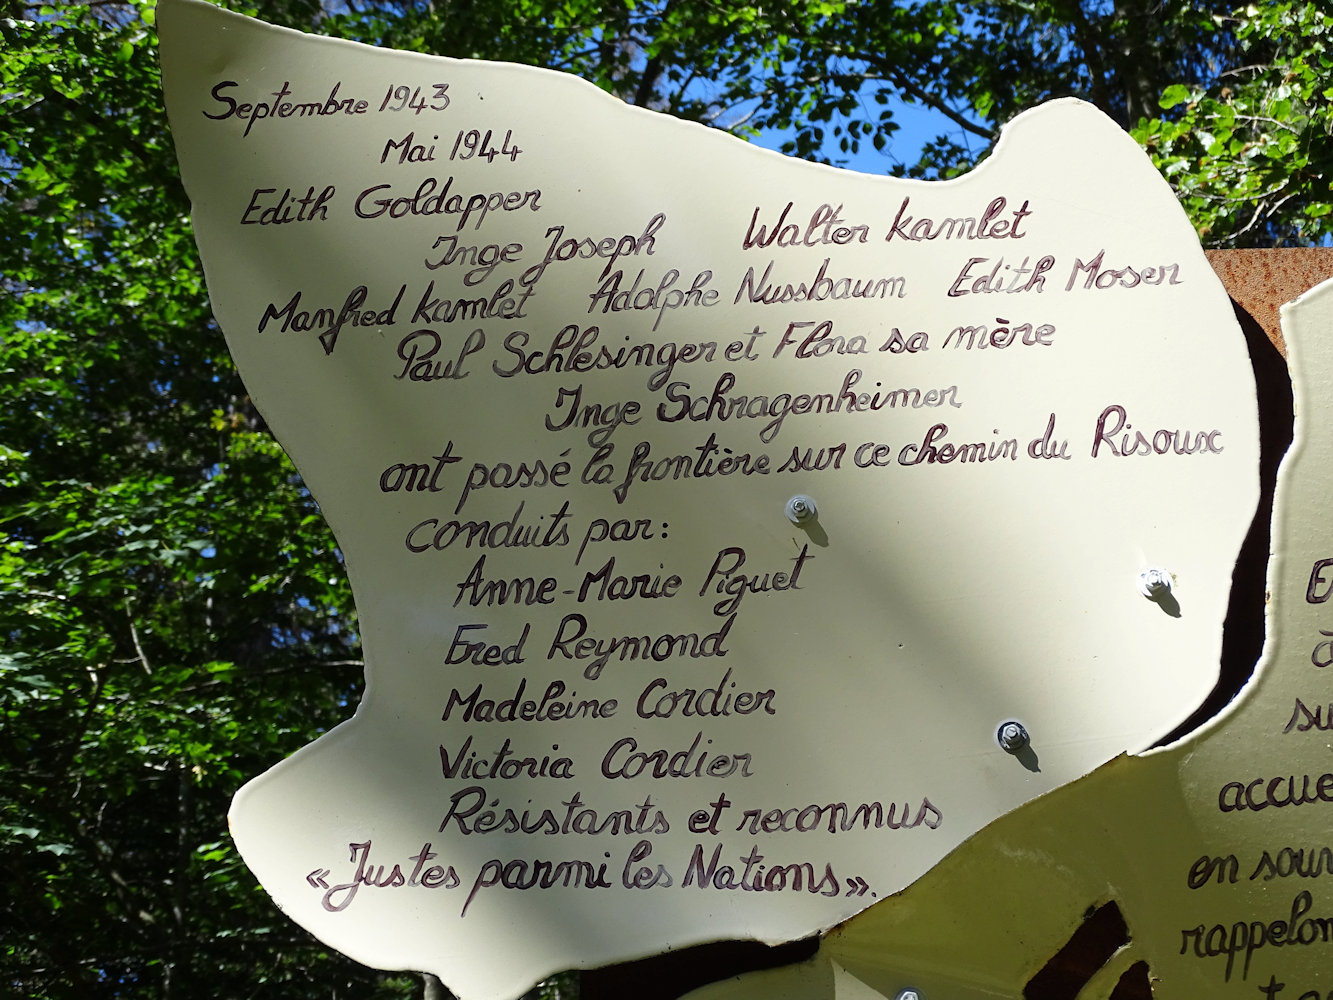 Septembre 1943
Mai 1944
Edith Goldapper
Inge Joseph Walter Kamlet
Manfred Kamlet Adolphe Nussbaum Edith Moser
Paul Schlesinger et Flora sa mère
Inge Schragenheimer
ont passé la frontière sur ce chemin du Risoux
conduits par :
Anne-Marie Piguet
Fred Reymond
Madeleine Cordier
Victoria Cordier
Résistants et reconnus
« Justes parmi les Nations ».
à
su
accue
en sour
rappelon